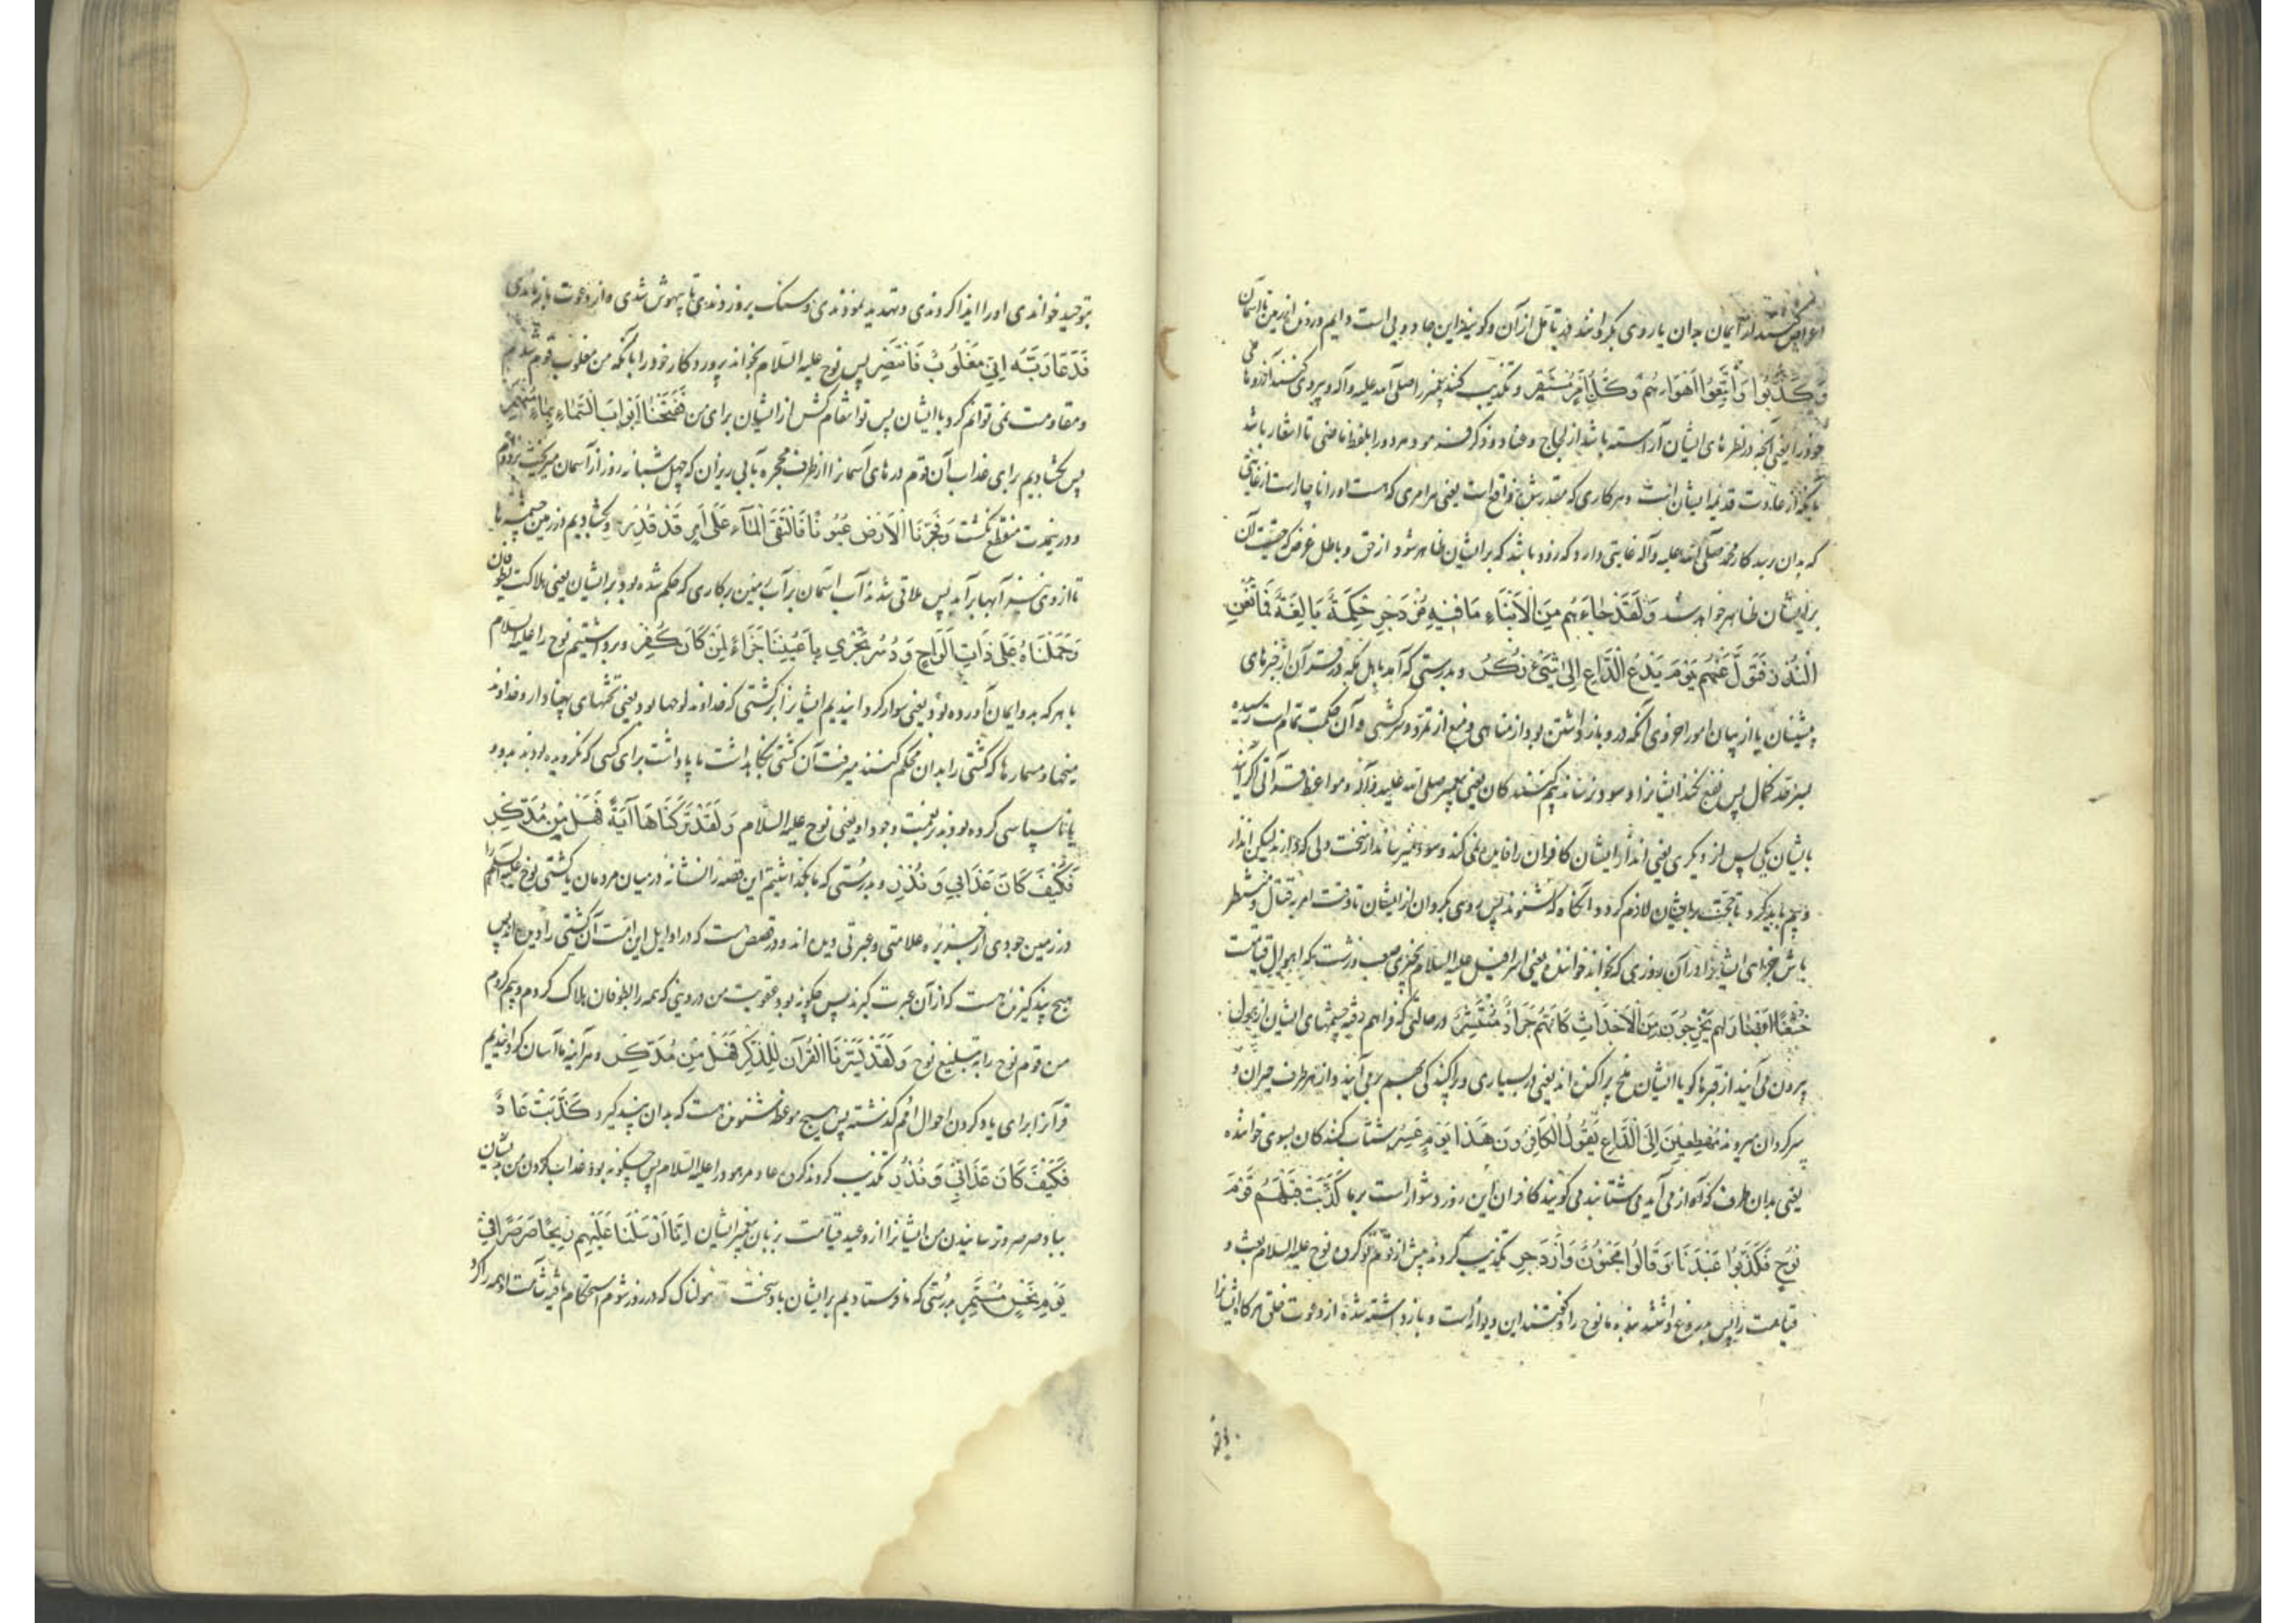 اعراض کنند از ایمان بدان یا روی بگردانند از تأمل از آن و گویند این جادویی است دایم از زمین تا آسمان
وَكَذَّبُوا وَاتَّبَعُوا اَهْوَاءَهُمْ وَكُلُّ اَمْرٍ مُسْتَقِرٌّ و تکذیب کنند پیغمبر را صلی الله علیه و آله و پیروی کنند آرزوهای
خود را یعنی آنچه در نظرهای ایشان آراسته باشد از لجاج و عناد و ذکر
از عادت قدیمه ایشانست و هر کاری که مقدر شده واقع است یعنی هر امری که هست او را ناچار است از غایتی
که بدان رسد کار محمد صلی الله علیه و آله غایتی دارد که زود باشد که بر ایشان ظاهر شود از حق و باطل غرض که حقیقت آن
بر ایشان ظاهر خواهد شد وَلَقَدْ جَاءَهُمْ مِنَ الْاَنْبَاءِ مَا فِيهِ مُزْدَجَرٌ حِكْمَةٌ بَالِغَةٌ فَمَا تُغْنِ
النُّذُرُ فَتَوَلَّ عَنْهُمْ يَوْمَ يَدْعُ الدَّاعِ اِلَى شَيْءٍ نُكُرٍ و بدرستی که آمد باهل مکه در قرآن از خبرهای
پیشینیان یا از بیان امور اخروی آنکه در او بازداشتن بود از مناهی و منع از تمرد و سرکشی و آن حکمت تمام است رسیده
بسرحد کمال پس نفع نکند ایشانرا و سود نرساند بیم کنندکان یعنی پیغمبر صلی الله علیه و آله و مواعظ قرآنی اگر آیند
بایشان یکی پس از دیگری یعنی انذار ایشان کافران را فایده نمی کند و سود نمیرساند از سخت دلی که دارند لیکن انذار
و بیم باید کرد تا حجت بر ایشان لازم گردد و آنگاه که نشنوند پس روی بگردان از ایشان تا وقت امر بقتال و منتظر
باش جزای ایشانرا در آن روزی که بخواند خواننده یعنی اسرافیل علیه السلام بچیزی صعب و زشت که اهوال قیامت
خُشَّعًا اَبْصَارُهُمْ يَخْرُجُونَ مِنَ الْاَجْدَاثِ كَاَنَّهُمْ جَرَادٌ مُنْتَشِرٌ در حالتی که فراهم رفته چشمهای ایشان از هول
بیرون می آیند از قبرها گویا ایشان ملخ پراکنده اند یعنی در بسیاری و پراکندگی بهم بر می آیند و از هر طرف حیران و
سرگردان میروند مُهْطِعِينَ اِلَى الدَّاعِ يَقُولُ الْكَافِرُونَ هَذَا يَوْمٌ عَسِرٌ شتاب کنندکان بسوی خواننده
یعنی بدان طرف که آواز می آید می شتابند می گویند کافران این روز دشوار است بر ما كَذَّبَتْ قَبْلَهُمْ قَوْمُ
نُوحٍ فَكَذَّبُوا عَبْدَنَا وَقَالُوا مَجْنُونٌ وَازْدُجِرَ تکذیب کردند پیش از قوم تو گروه نوح علیه السلام بعث و
قیامت را پس دروغ داشتند بنده ما نوح را و گفتند این دیوانه است و بازداشته شده از دعوت خلق هر گاه ایشانرا
بتوحید خواندی او را ایذا کردندی و تهدید نمودندی و سنگ بر وزدندی تا بیهوش شدی و از دعوت باز ماندی
فَدَعَا رَبَّهُ اِنِّي مَغْلُوبٌ فَانْتَصِرْ پس نوح علیه السلام بخواند پروردگار خود را بآنکه من مغلوب قوم شدم
و مقاومت نمی توانم کرد با ایشان پس تو انتقام کش از ایشان برای من فَفَتَحْنَا اَبْوَابَ السَّمَاءِ بِمَاءٍ مُنْهَمِرٍ
پس بکشادیم برای عذاب آن قوم درهای آسمانرا از طرف مجره بآبی ریزان که چهل شبانه روز از آسمان میریخت بر قوم
و درین مدت منقطع نگشت وَفَجَّرْنَا الْاَرْضَ عُيُونًا فَالْتَقَى الْمَاءُ عَلَى اَمْرٍ قَدْ قُدِرَ و بکشادیم در زمین چشمه ها
تا از وی نیز آبها برآمد پس ملاقی شدند آب آسمان بر آب زمین بر کاری که حکم شده بود بر ایشان یعنی هلاکت بطوفان
وَحَمَلْنَاهُ عَلَى ذَاتِ اَلْوَاحٍ وَدُسُرٍ تَجْرِي بِاَعْيُنِنَا جَزَاءً لِمَنْ كَانَ كُفِرَ و برداشتیم نوح را علیه السلام
با هر که بدو ایمان آورده بود یعنی سوار گردانیدیم ایشانرا بر کشتی که خداوند لوحها بود یعنی تختهای پهناور و خداوند
میخها و مسمارها که کشتی را بدان محکم کنند میرفت آن کشتی بنگاهداشت ما پاداشت برای کسی که نگرویده بودند بدو و
یا ناسپاسی کرده بودند بر نعمت وجود او یعنی نوح علیه السلام وَلَقَدْ تَرَكْنَاهَا آيَةً فَهَلْ مِنْ مُدَّكِرٍ
فَكَيْفَ كَانَ عَذَابِي وَنُذُرِ و بدرستی که ما بگذاشتیم این قصه را نشانه در میان مردمان یا کشتی نوح علیه السلام را
در زمین جودی از جزیره علامتی و عبرتی و در قصص است که در اوایل این امت آن کشتی را دیده اند پس
هیچ پند گیرنده هست که از آن عبرت گیرند پس چگونه بود عقوبت من در وقتی که همه را بطوفان هلاک کردم و بیم کردم
من قوم نوح را به تبلیغ نوح وَلَقَدْ يَسَّرْنَا الْقُرْآنَ لِلذِّكْرِ فَهَلْ مِنْ مُدَّكِرٍ و هر آینه ما آسان گردانیدیم
قرآنرا برای یاد کردن احوال امم گذشته پس هیچ موعظه شنونده هست که بدان پند گیرد كَذَّبَتْ عَادٌ
فَكَيْفَ كَانَ عَذَابِي وَنُذُرِ تکذیب کردند گروه عاد مر هود را علیه السلام پس چگونه بود عذاب کردن من بدیشان
بباد صرصر و ترسانیدن من ایشانرا از وعید قیامت بزبان پیغمبر ایشان اِنَّا اَرْسَلْنَا عَلَيْهِمْ رِيحًا صَرْصَرًا فِي
يَوْمِ نَحْسٍ مُسْتَمِرٍّ بدرستی که ما فرستادیم بر ایشان باد سخت هولناک که در روز شوم